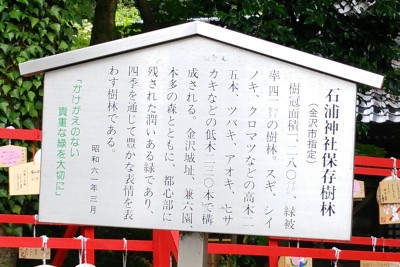 石浦神社保存樹林
（金沢市指定）
樹冠面積一、二八〇㎡、緑被
率四一％の樹林。スギ、シイ
ノキ、クロマツなどの高木二
五本、ツバキ、アオキ、ヒサ
カキなどの低木二三〇本で構
成される。金沢城址、兼六園、
本多の森とともに、都心部に
残された潤いある緑であり、
四季を通じて豊かな表情を表
わす樹林である。
昭和六一年三月
「かけがえのない
貴重な緑を大切に」